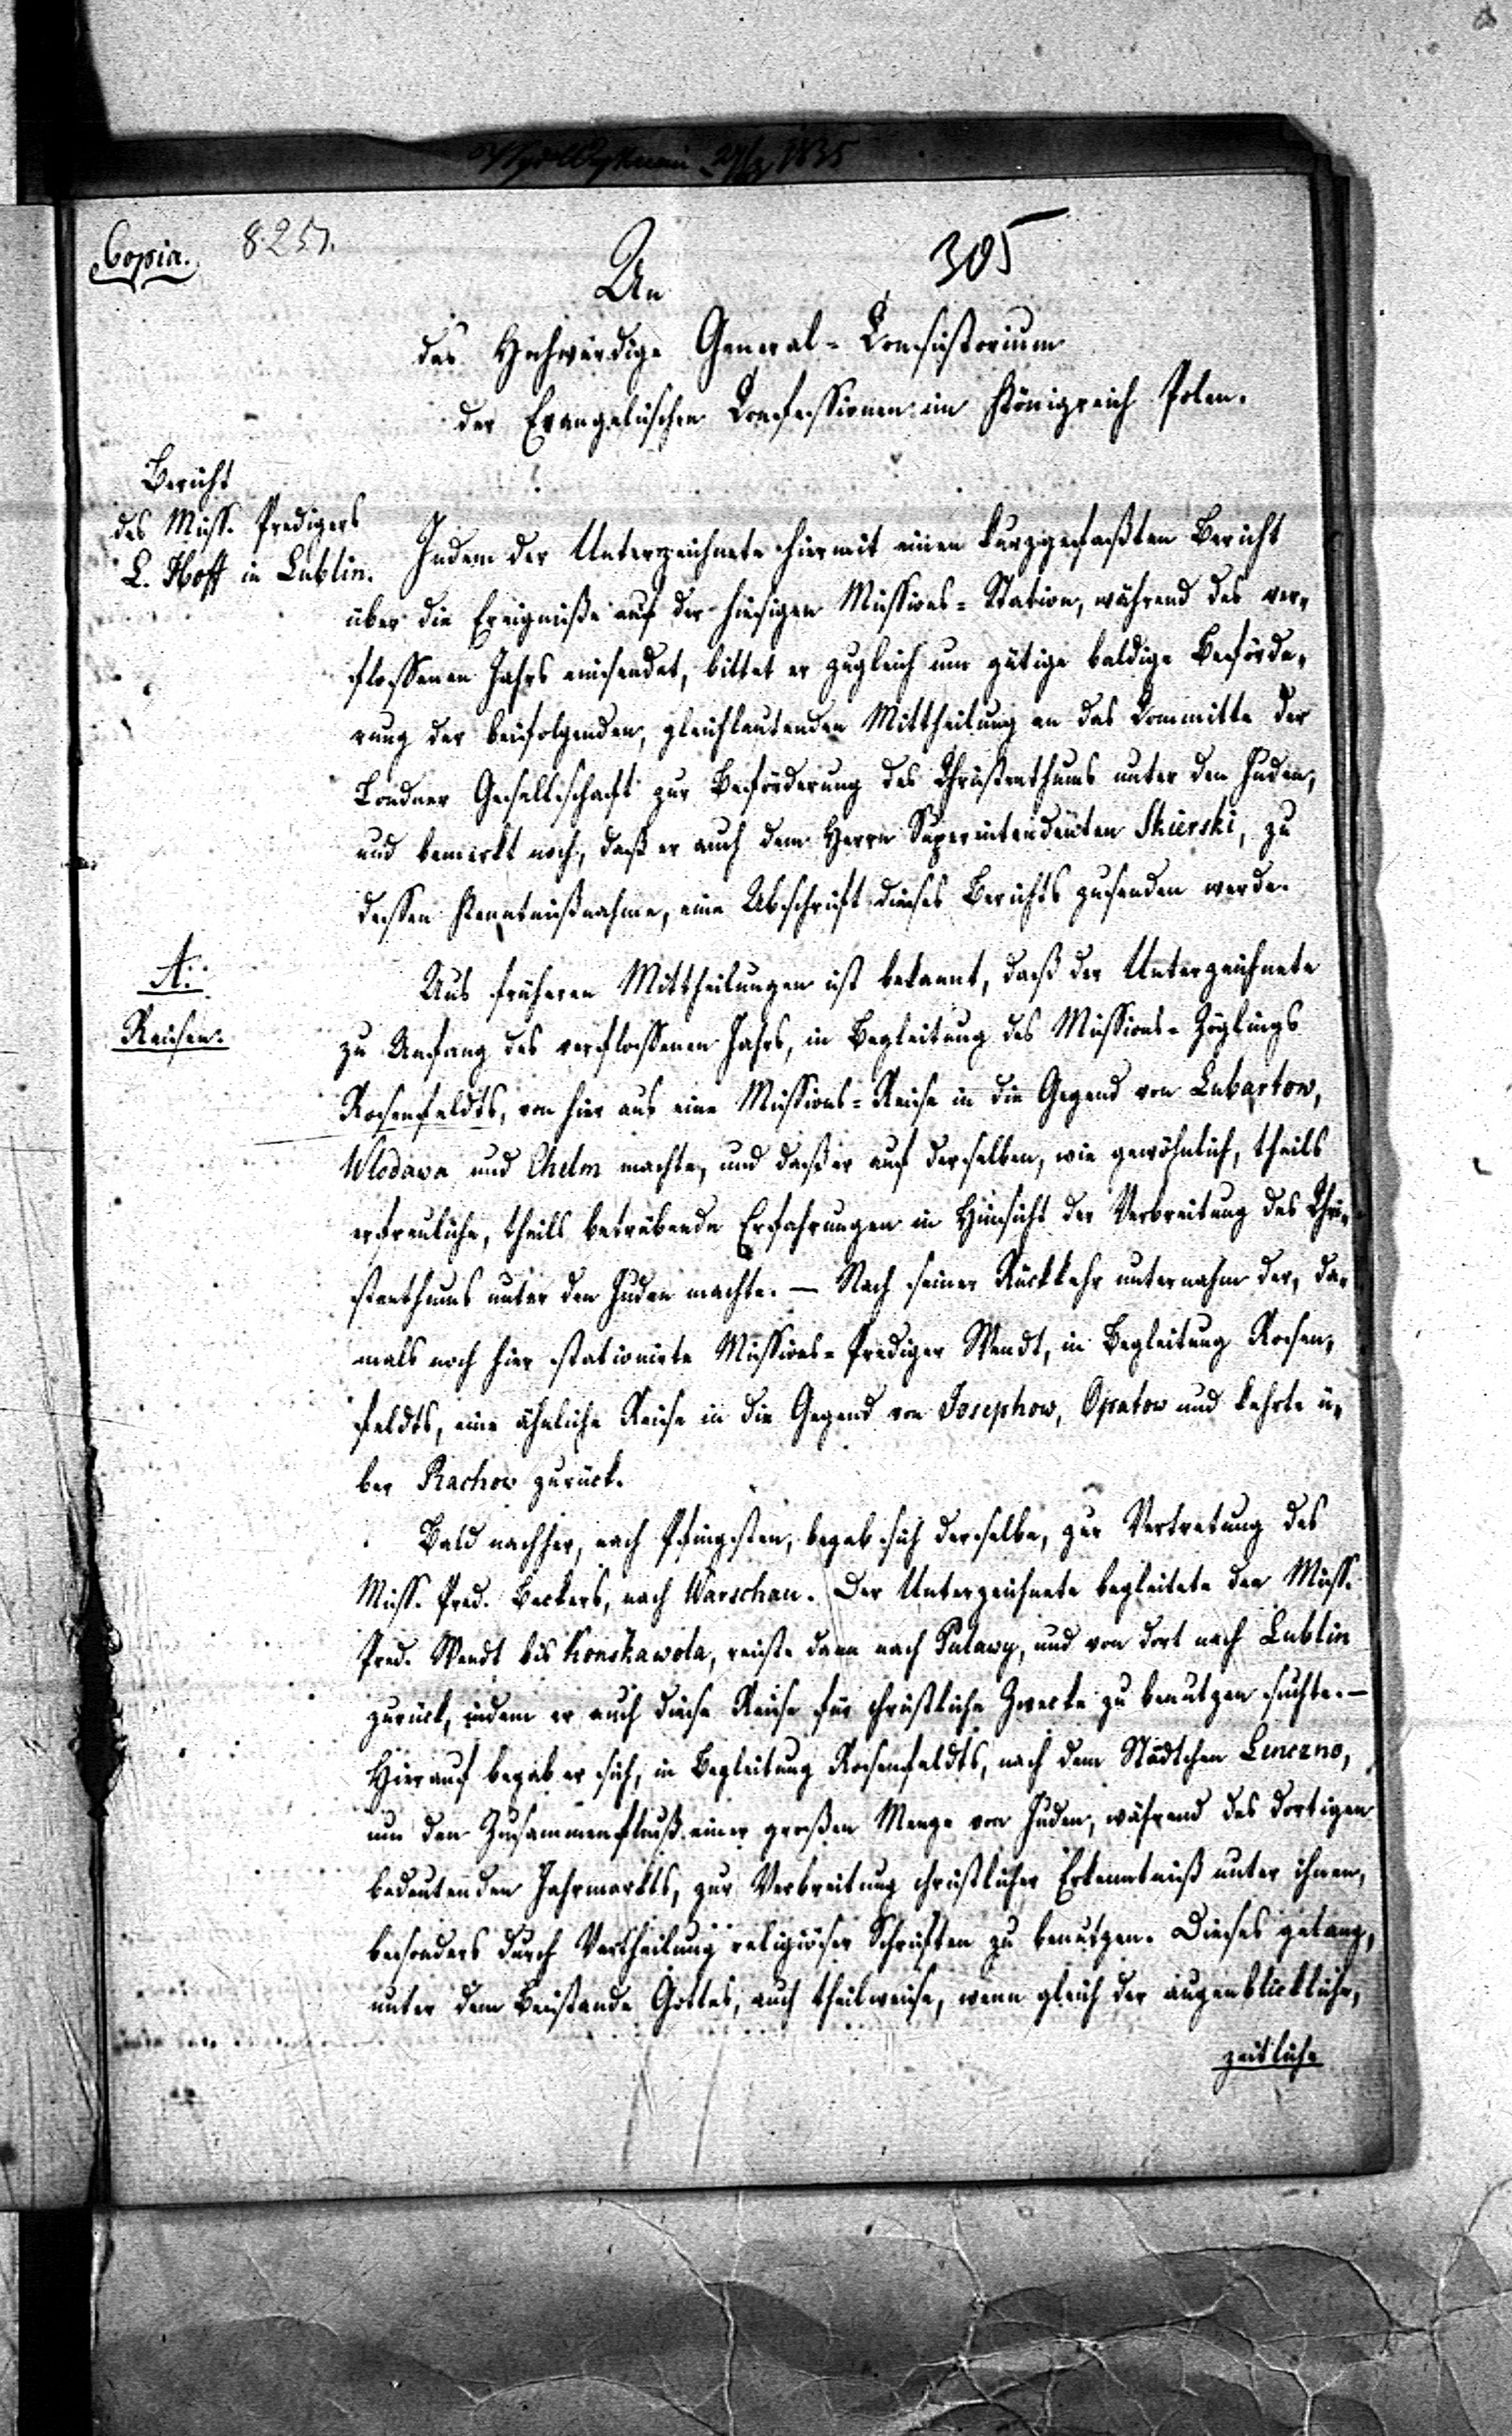 1835
Copia.
825
305
An
das Hochwürdige General-Consistorium
der Evangelischen Confessionen im Königreich Polen.
Bericht
des Miss. Predigers
L. Hoff in Lublin.
Indem der Unterzeichnete hiermit einen kurzgefaßten Bericht
über die Ereigniße auf der hiesigen Missions-Station, während des ver-
flossenen Jahrs einsendet, bittet er zugleich um gütige baldige Beförde-
rung der beifolgenden, gleichlautenden Mittheilung an das Committe der
Londner Gesellschaft zur Beförderung des Christenthums unter den Juden,
und bemerkt noch, daß er auch dem Herrn Superintendenten Skierski, zu
dessen Kenntnißnahme, eine Abschrift dieses Berichts zusenden werde.
A.
Reisen.
Aus früheren Mittheilungen ist bekannt, daß der Unterzeichnete
zu Anfang des verflossenen Jahrs, in Begleitung des Missions-Zöglings
Rosenfeldts, von hier aus eine Missions-Reise in die Gegend von Lubartow,
Wlodava und Chelm machte, und daß er auf derselben, wie gewöhnlich, theils
erfreuliche, theils betrübende Erfahrungen in Hinsicht der Verbreitung des Chri-
stenthums unter den Juden machte. — Nach seiner Rückkehr unternahm der, da-
mals noch hier stationirte Missions-Prediger Wendt, in Begleitung Rosen-
feldts, eine ähnliche Reise in die Gegend von Josephow, Opatow und kehrte ü-
ber Rachow zurück.
Bald nachher, nach Pfingsten, begab sich derselbe, zur Vertretung des
Miss. Pred. Beckers, nach Warschau. Der Unterzeichnete begleitete den Miss.
Pred. Wendt bis Konskawola, reiste dann nach Pulawy, und von dort nach Lublin
zurück, indem er auch diese Reise für christliche Zwecke zu benutzen suchte. —
Hierauf begab er sich, in Begleitung Rosenfeldts, nach dem Städtchen Lenczno,
um den Zusammenfluß einer großen Menge von Juden, während des dortigen
bedeutenden Jahrmarkts, zur Verbreitung christlicher Erkenntniß unter ihnen,
besonders durch Vertheilung religiöser Schriften zu benutzen. Dieses gelang,
unter dem Beistande Gottes, auch theilweise, wenn gleich der augenblickliche,
zeitliche